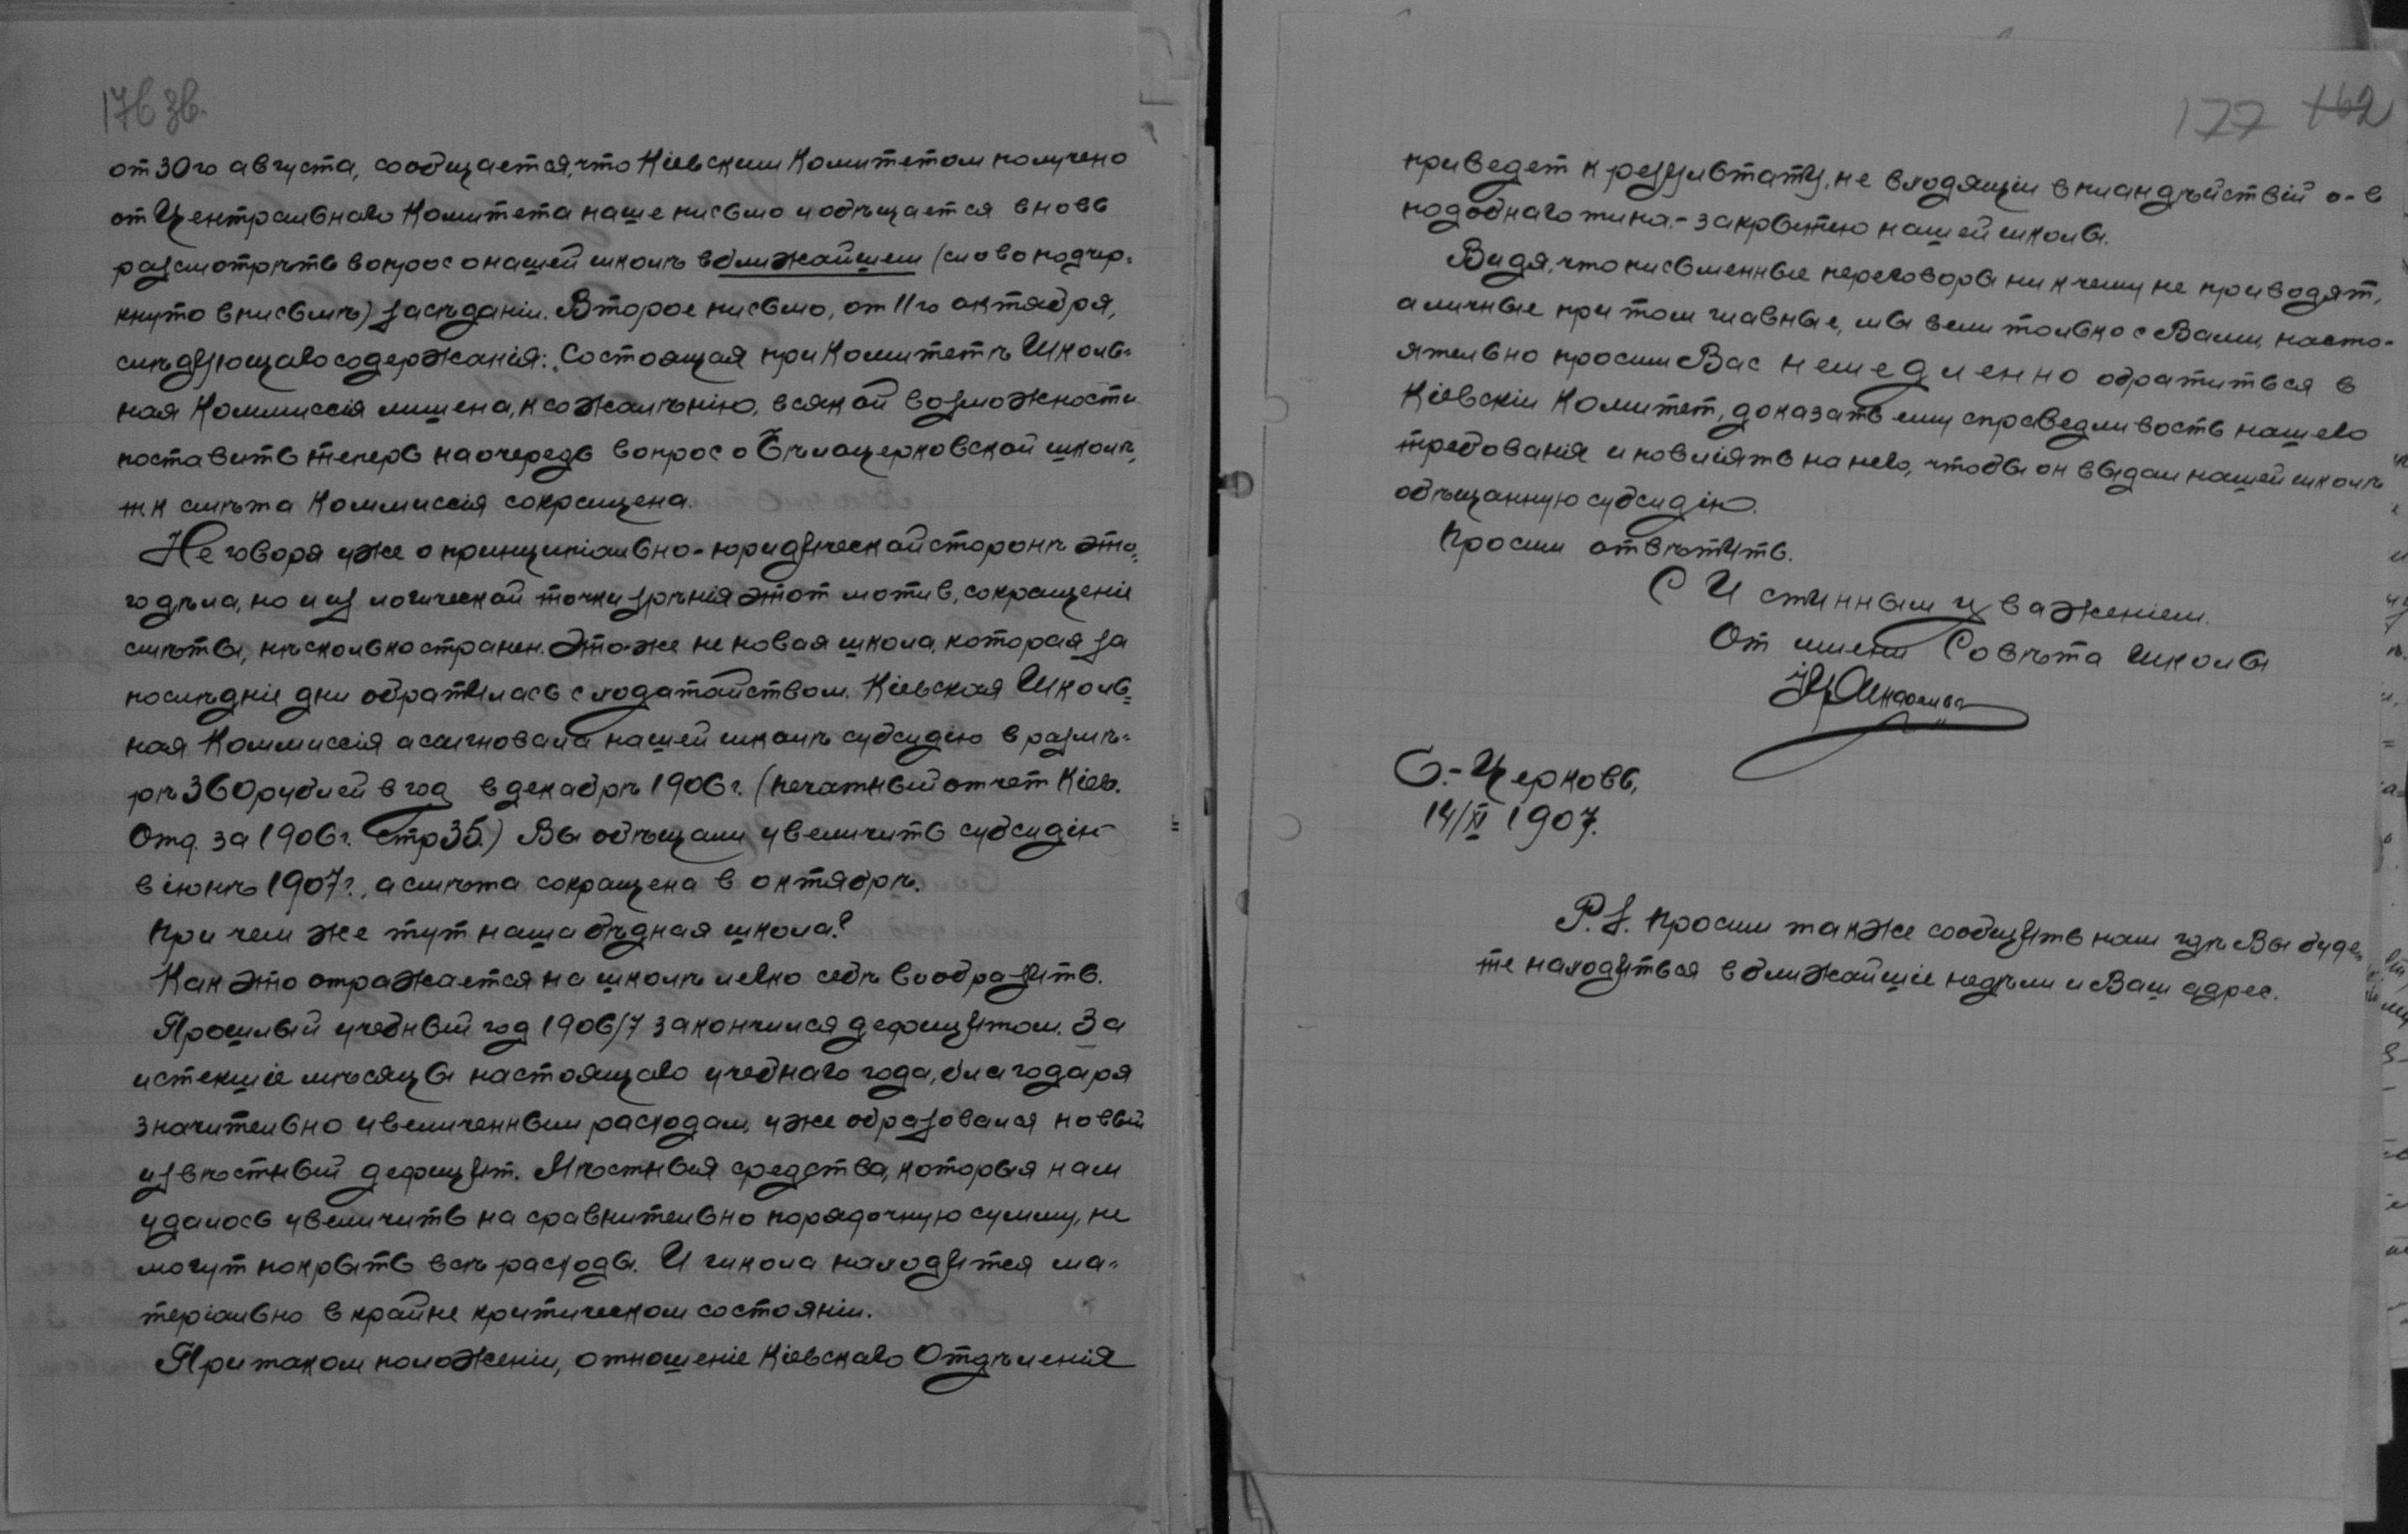 176 зв.
от 30го августа, сообщается, что Кіевским Комитетом получено
от Центральнаго Комитета наше письмо и обѣщается вновь
разсмотрѣть вопрос о нашей школѣ в ближайшем (слово подчер=
кнуто в письмѣ) засѣданіи. Второе письмо, от 11го октября,
слѣдующаго содержанія: „Состоящая при Комитетѣ Школь=
ная Коммиссія лишена, к сожалѣнію, всякой возможности
поставить теперь на очередь вопрос о Бѣлоцерковской школѣ,
т.к смѣта Коммиссія сокращена.
Не говоря уже о принципіально-юридической сторонѣ это=
го дѣла, но и из логической точки зрѣнія этот мотив, сокращеніе
смѣты, нѣсколько странен. Это-же не новая школа, которая за
послѣдніе дни обратилась с ходатайством. Кіевская Школь=
ная Коммиссія ассигновала нашей школѣ субсидію в размѣ=
рѣ 360 рублей в год в декабрѣ 1906 г. (печатный отчет Кіев.
Отд. за 1906 г. стр 35.) Вы обѣщали увеличить субсидію
в іюнѣ 1907 г., а смѣта сокращена в октябрѣ.
При чем же тут наша бѣдная школа?
Как это отражается на школѣ легко себѣ вообразить.
Прошлый учебный год 1906/7 закончился дефицитом. За
истекшіе мѣсяцы настоящаго учебнаго года, благодаря
значительно увеличенным расходам, уже образовался новый
извѣстный дефицит. Мѣстныя средства, которыя нам
удалось увеличить на сравнительно порядочную сумму, не
могут покрыть всѣ расходы. И школа находится ма=
теріально в крайне критическом состояніи.
При таком положеніи, отношеніе Кіевскаго Отдѣленія
177 162
приведет к результату, не входящім в план дѣйствій о-в
подобнаго типа.- закрытію нашей школы.
Видя, что письменные переговоры ни к чему не приводят,
а личные при том главные, мы вели только с Вами, насто-
ятельно просим Вас немедленно обратиться в
Кіевскій Комитет, доказать ему справедливость нашего
требованія и повліять на него, чтобы он выдал нашей школѣ
обѣщанную субсидію.
Просим отвѣтить.
С Истинным уваженіем.
От имени Совѣта школы
Б.-Церковь,
14/XI 1907.
P.S. Просим также сообщить нам гдѣ Вы буде
те находиться в ближайшіе недѣли и Ваш адрес.